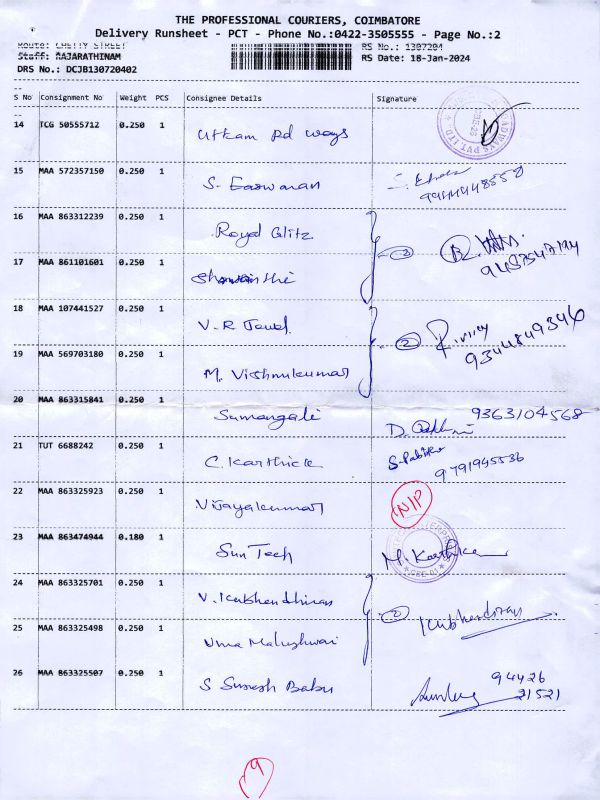 THE PROFESSIONAL COURIERS, COIMBATORE
Delivery Runsheet - PCT - Phone No.:0422-3505555 - Page No.:2
Route: CHETTY STREET
RS No.: 1307204
Staff: RAJARATHINAM
RS Date: 18-Jan-2024
DRS No.: DCJB130720402
S No Consignment No Weight PCS Consignee Details Signature
14 TCG 50555712 0.250 1 Utkam Rd ways
15 MAA 572357150 0.250 1 S. Easwaran
9944448550
16 MAA 863312239 0.250 1 Royal Glitz
2
9487547194
17 MAA 861101601 0.250 1
18 MAA 107441527 0.250 1 V.R Jewel
2
9344849346
19 MAA 569703180 0.250 1 M. Vishnukumar
20 MAA 863315841 0.250 1 Sumangali
9363104568
21 TUT 6688242 0.250 1 C. Karthick
9791945536
22 MAA 863325923 0.250 1 Vijayakumar
NIP
23 MAA 863474944 0.180 1 Sun Tech M. Karthika
24 MAA 863325701 0.250 1 V. Kubhendhiran
2 Kubhendiran
25 MAA 863325498 0.250 1 Uma Maheshwari
26 MAA 863325507 0.250 1 S Suresh Babu
94426
21521